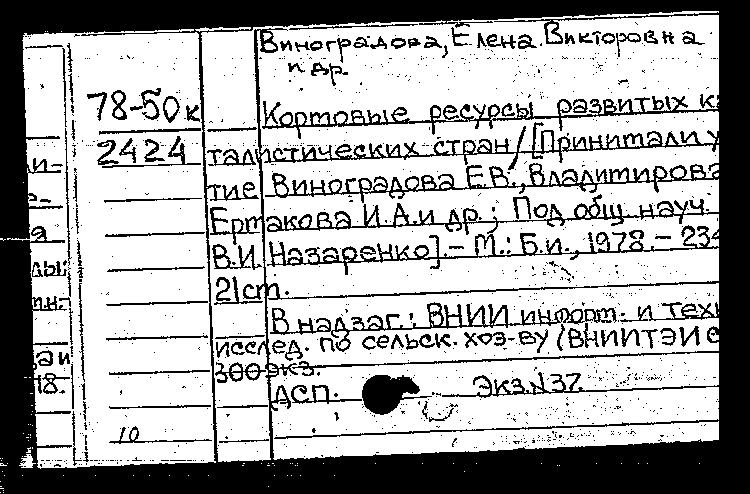 Виноградова, Елена Викторовна
и др.
78-50к
2424
Кортовые ресурсы развитых к
талистических стран / [Принитали у
тие Виноградова Е.В., Владитирова
Ертакова И.А. и др.; Под общ. науч.
В.И. Назаренко]. – М.: Б.и., 1978. – 234
21 ст.
В надзаг.: ВНИИ информ. и техн
исслед. по сельск. хоз-ву (ВНИИТЭИ С
300 экз.
ДСП. Экз. № 37.
10
ли-
я
ды:
18.